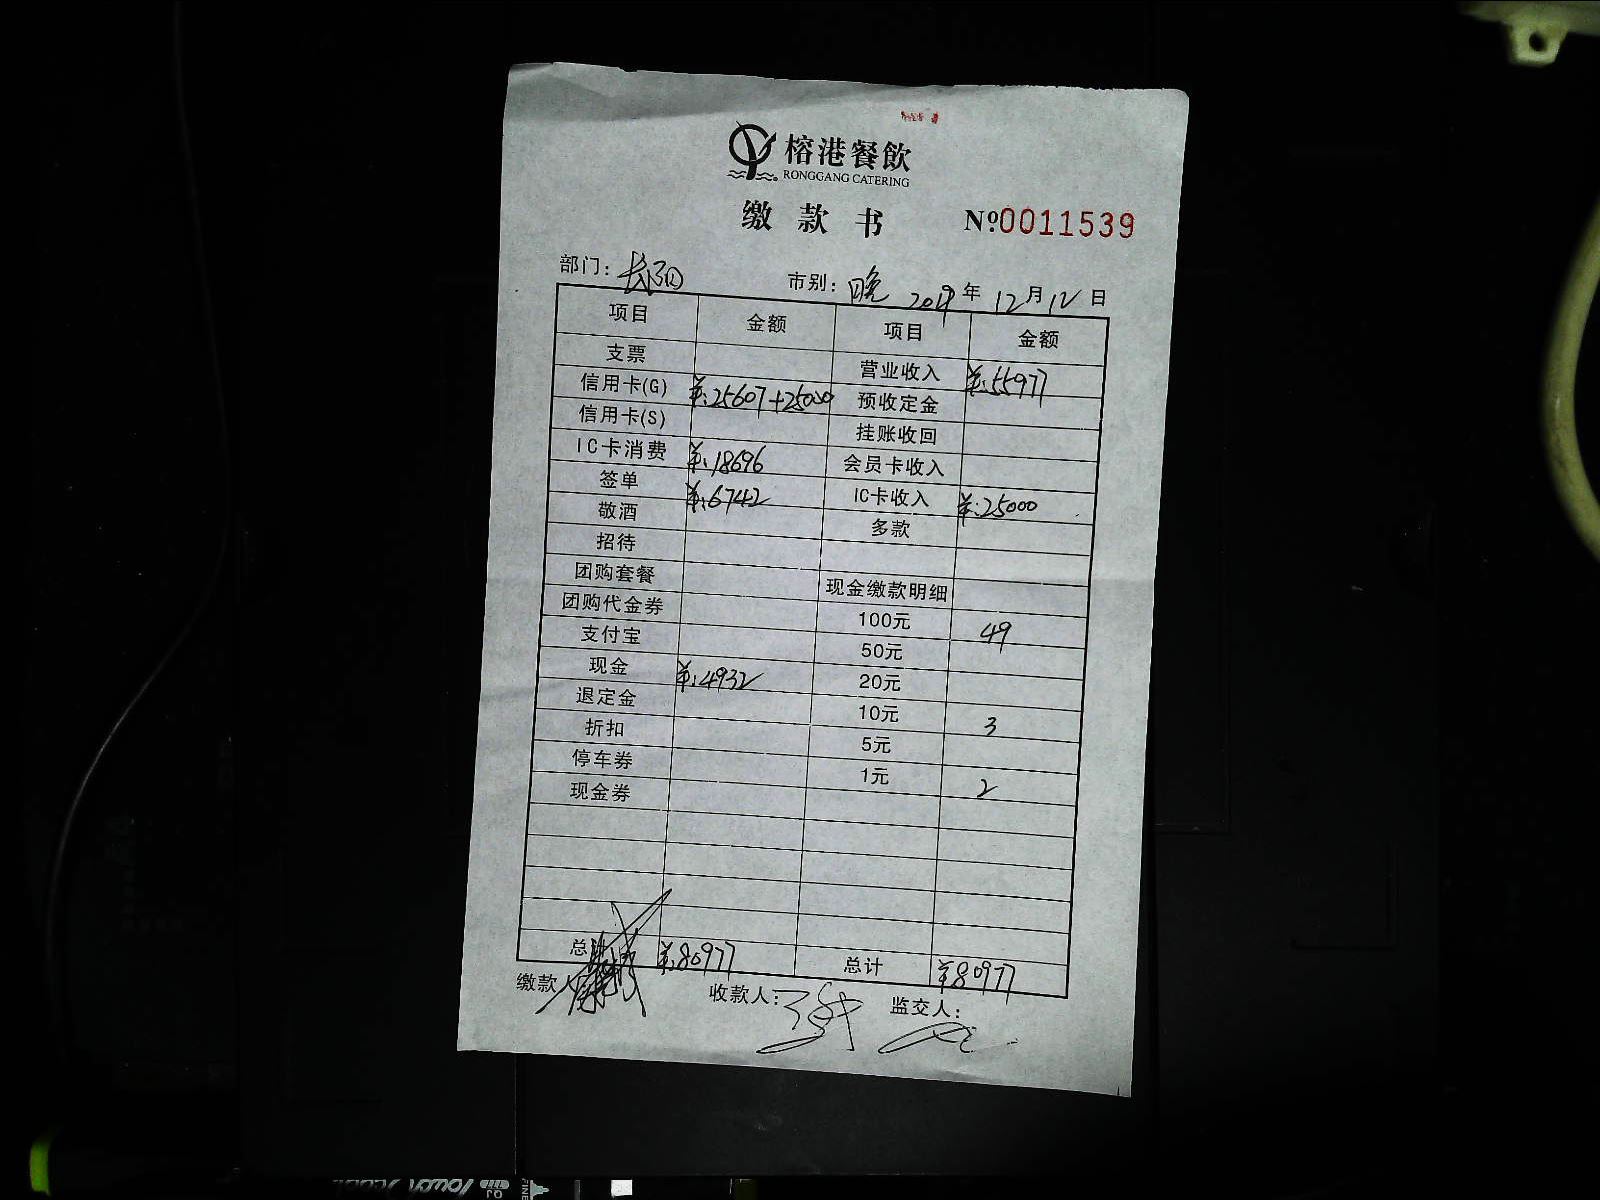 榕港餐飲
RONGGANG CATERING
缴款书 №0011539
部门：长阳 市别：晚 2019年12月12日
项目 金额 项目 金额
支票 营业收入 ¥:55977
信用卡(G) ¥:25607+25000 预收定金
信用卡(S) 挂账收回
IC卡消费 ¥:18696 会员卡收入
签单 ¥:6742 IC卡收入 ¥:25000
敬酒 多款
招待
团购套餐 现金缴款明细
团购代金券 100元 49
支付宝 50元
现金 ¥:4932 20元
退定金 10元 3
折扣 5元
停车券 1元 2
现金券
总计 ¥:80977 总计 ¥80977
缴款人 收款人： 监交人：